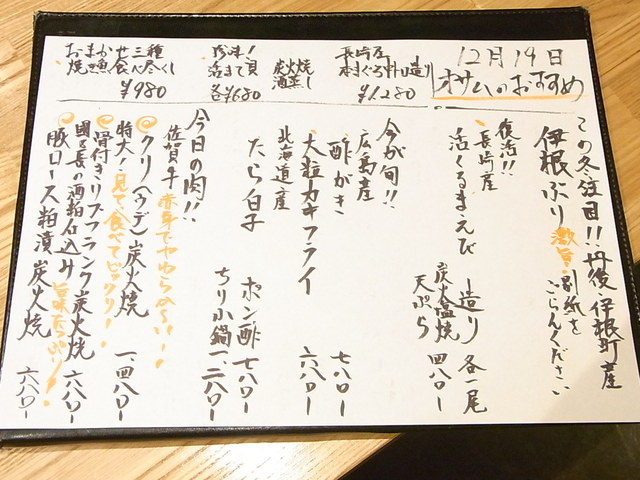 12月19日
オサムのおすすめ
長崎産
本まぐろ中トロ造り
¥1,280
珍味!
活まて貝
炭火焼
酒蒸し
各¥680
おまかせ三種
焼き魚食べ尽くし
¥980
この冬注目!!丹後 伊根町産
伊根ぶり 激旨! 別紙を
ごらんください
復活!!
長崎産
活くるまえび
造り 各一尾
炭火塩焼
天ぷら 四八〇ー
今が旬!!
広島産
酢がき 七八〇ー
大粒カキフライ 六八〇ー
北海道産
たら白子 ポン酢 七八〇ー
ちり小鍋 一、二八〇ー
今日の肉!!
佐賀牛 赤身でやわらか〜い!
クリ(ウデ)炭火焼 一、四八〇ー
特大!見て、食べてビックリ!
骨付きリブフランク炭火焼 六八〇ー
國乃長の酒粕仕込み 旨味たっぷり!
豚ロース粕漬 炭火焼 六八〇ー